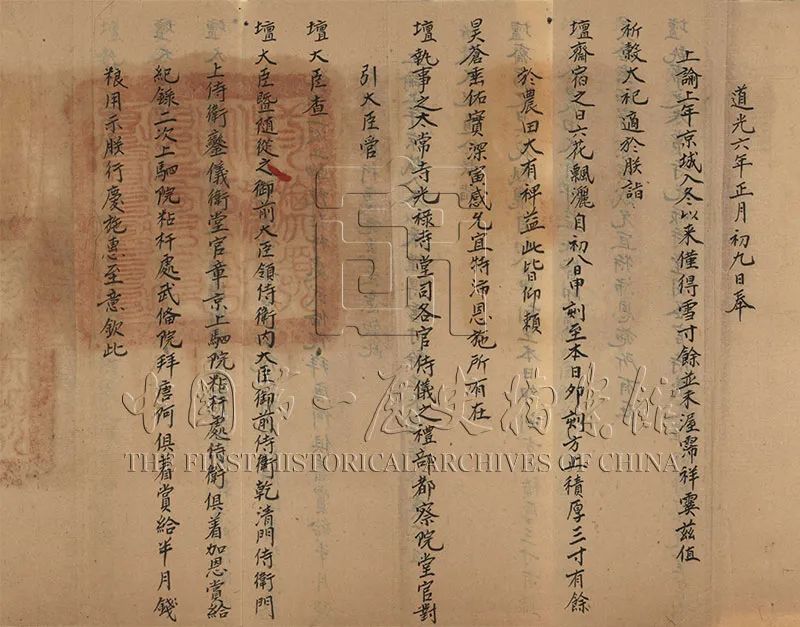 道光六年正月初九日奉
上諭上年京城入冬以來僅得雪寸餘並未渥霈祥霙茲值
祈穀大祀適於朕詣
壇齋宿之日六花飄灑自初八日申刻至本日夘刻方止積厚三寸有餘
於農田大有裨益此皆仰賴
昊蒼垂佑實深寅感允宜特沛恩施所有在
壇執事之太常寺光祿寺堂司各官侍儀之禮部都察院堂官對
引大臣管
壇大臣查
壇大臣暨隨從之御前大臣領侍衛內大臣御前侍衛乾清門侍衛門
上侍衛鑾儀衛堂官章京上駟院粘杆處侍衛俱着加恩賞給
紀錄二次上駟院粘杆處武備院拜唐阿俱着賞給半月錢
粮用示朕行慶施惠至意欽此
中國第一歷史檔案館
THE FIRST HISTORICAL ARCHIVES OF CHINA